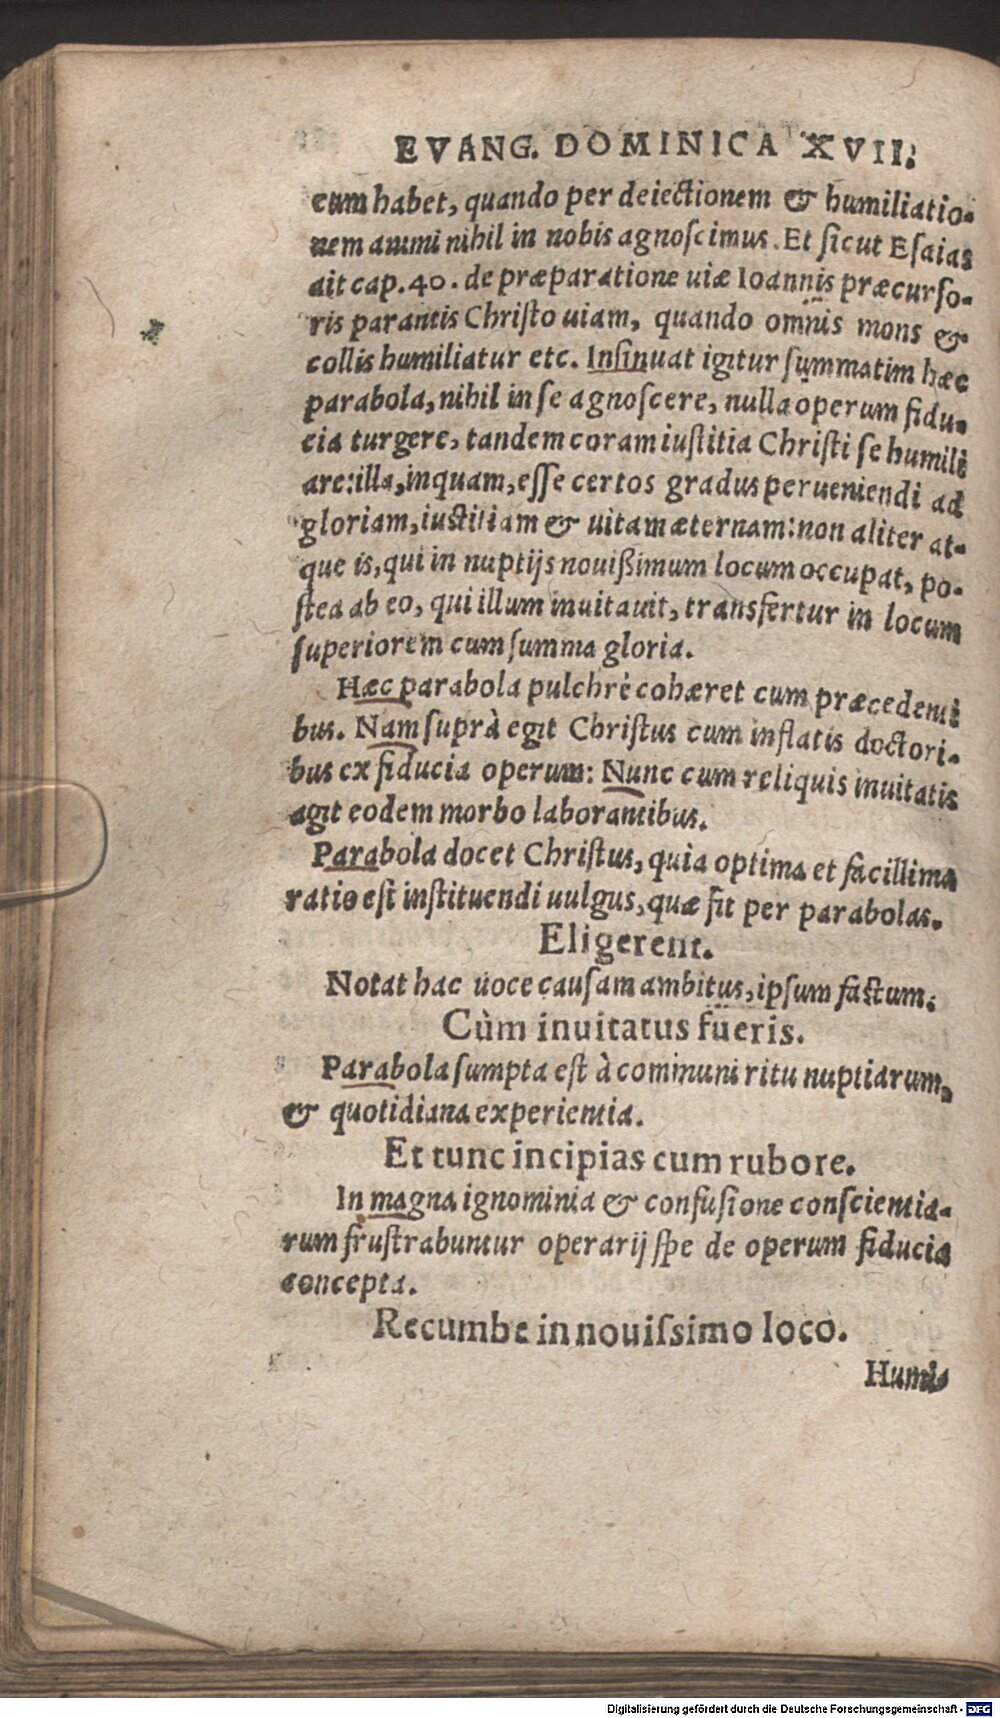 EVANG. DOMINICA XVII.
cum habet, quando per deiectionem & humiliatio-
nem animi nihil in nobis agnoscimus. Et sicut Esaias
ait cap. 40. de præparatione uiæ Ioannis præcurso-
ris parantis Christo uiam, quando omnis mons &
collis humiliatur etc. Insinuat igitur summatim hæc
parabola, nihil in se agnoscere, nulla operum fidu-
cia turgere, tandem coram iustitia Christi se humili
are: illa, inquam, esse certos gradus perueniendi ad
gloriam, iustitiam & uitam æternam: non aliter at-
que is, qui in nuptijs nouißimum locum occupat, po-
stea ab eo, qui illum inuitauit, transfertur in locum
superiorem cum summa gloria.
Hæc parabola pulchrè cohæret cum præcedenti
bus. Nam suprà egit Christus cum inflatis doctori-
bus ex fiducia operum: Nunc cum reliquis inuitatis
agit eodem morbo laborantibus.
Parabola docet Christus, quia optima et facillima
ratio est instituendi uulgus, quæ fit per parabolas.
Eligerent.
Notat hac uoce causam ambitus, ipsum fastum.
Cùm inuitatus fueris.
Parabola sumpta est à communi ritu nuptiarum,
& quotidiana experientia.
Et tunc incipias cum rubore.
In magna ignominia & confusione conscientia-
rum frustrabuntur operarij spe de operum fiducia
concepta.
Recumbe in nouissimo loco.
Humi-
Digitalisierung gefördert durch die Deutsche Forschungsgemeinschaft - DFG